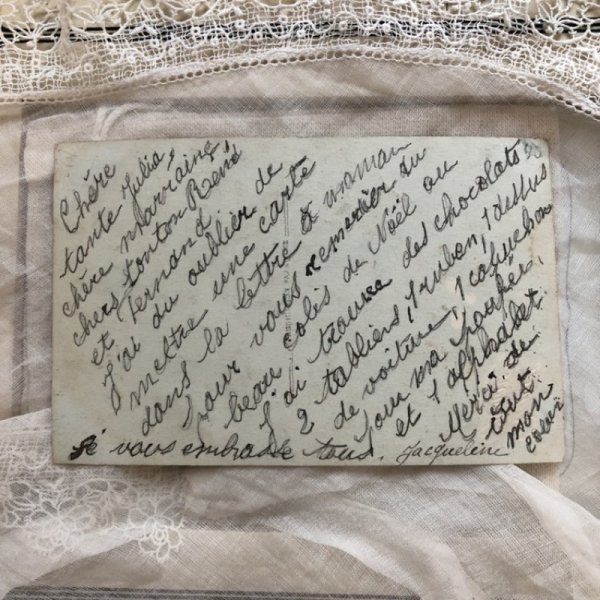 Chère
tante Julia,
chère marraine
chers tonton René
et Fernand,
J'ai du oublier de
mettre une carte
dans la lettre à maman
pour vous remercier du
beau colis de Noël ou
j'ai trouvé des chocolats
2 tabliers, 1 ruban, 1 dessus
de voiture, 1 capuchon
pour ma poupée,
et 1 alphabet
Merci de
tout
mon
cœur
Je vous embrasse tous. Jacqueline